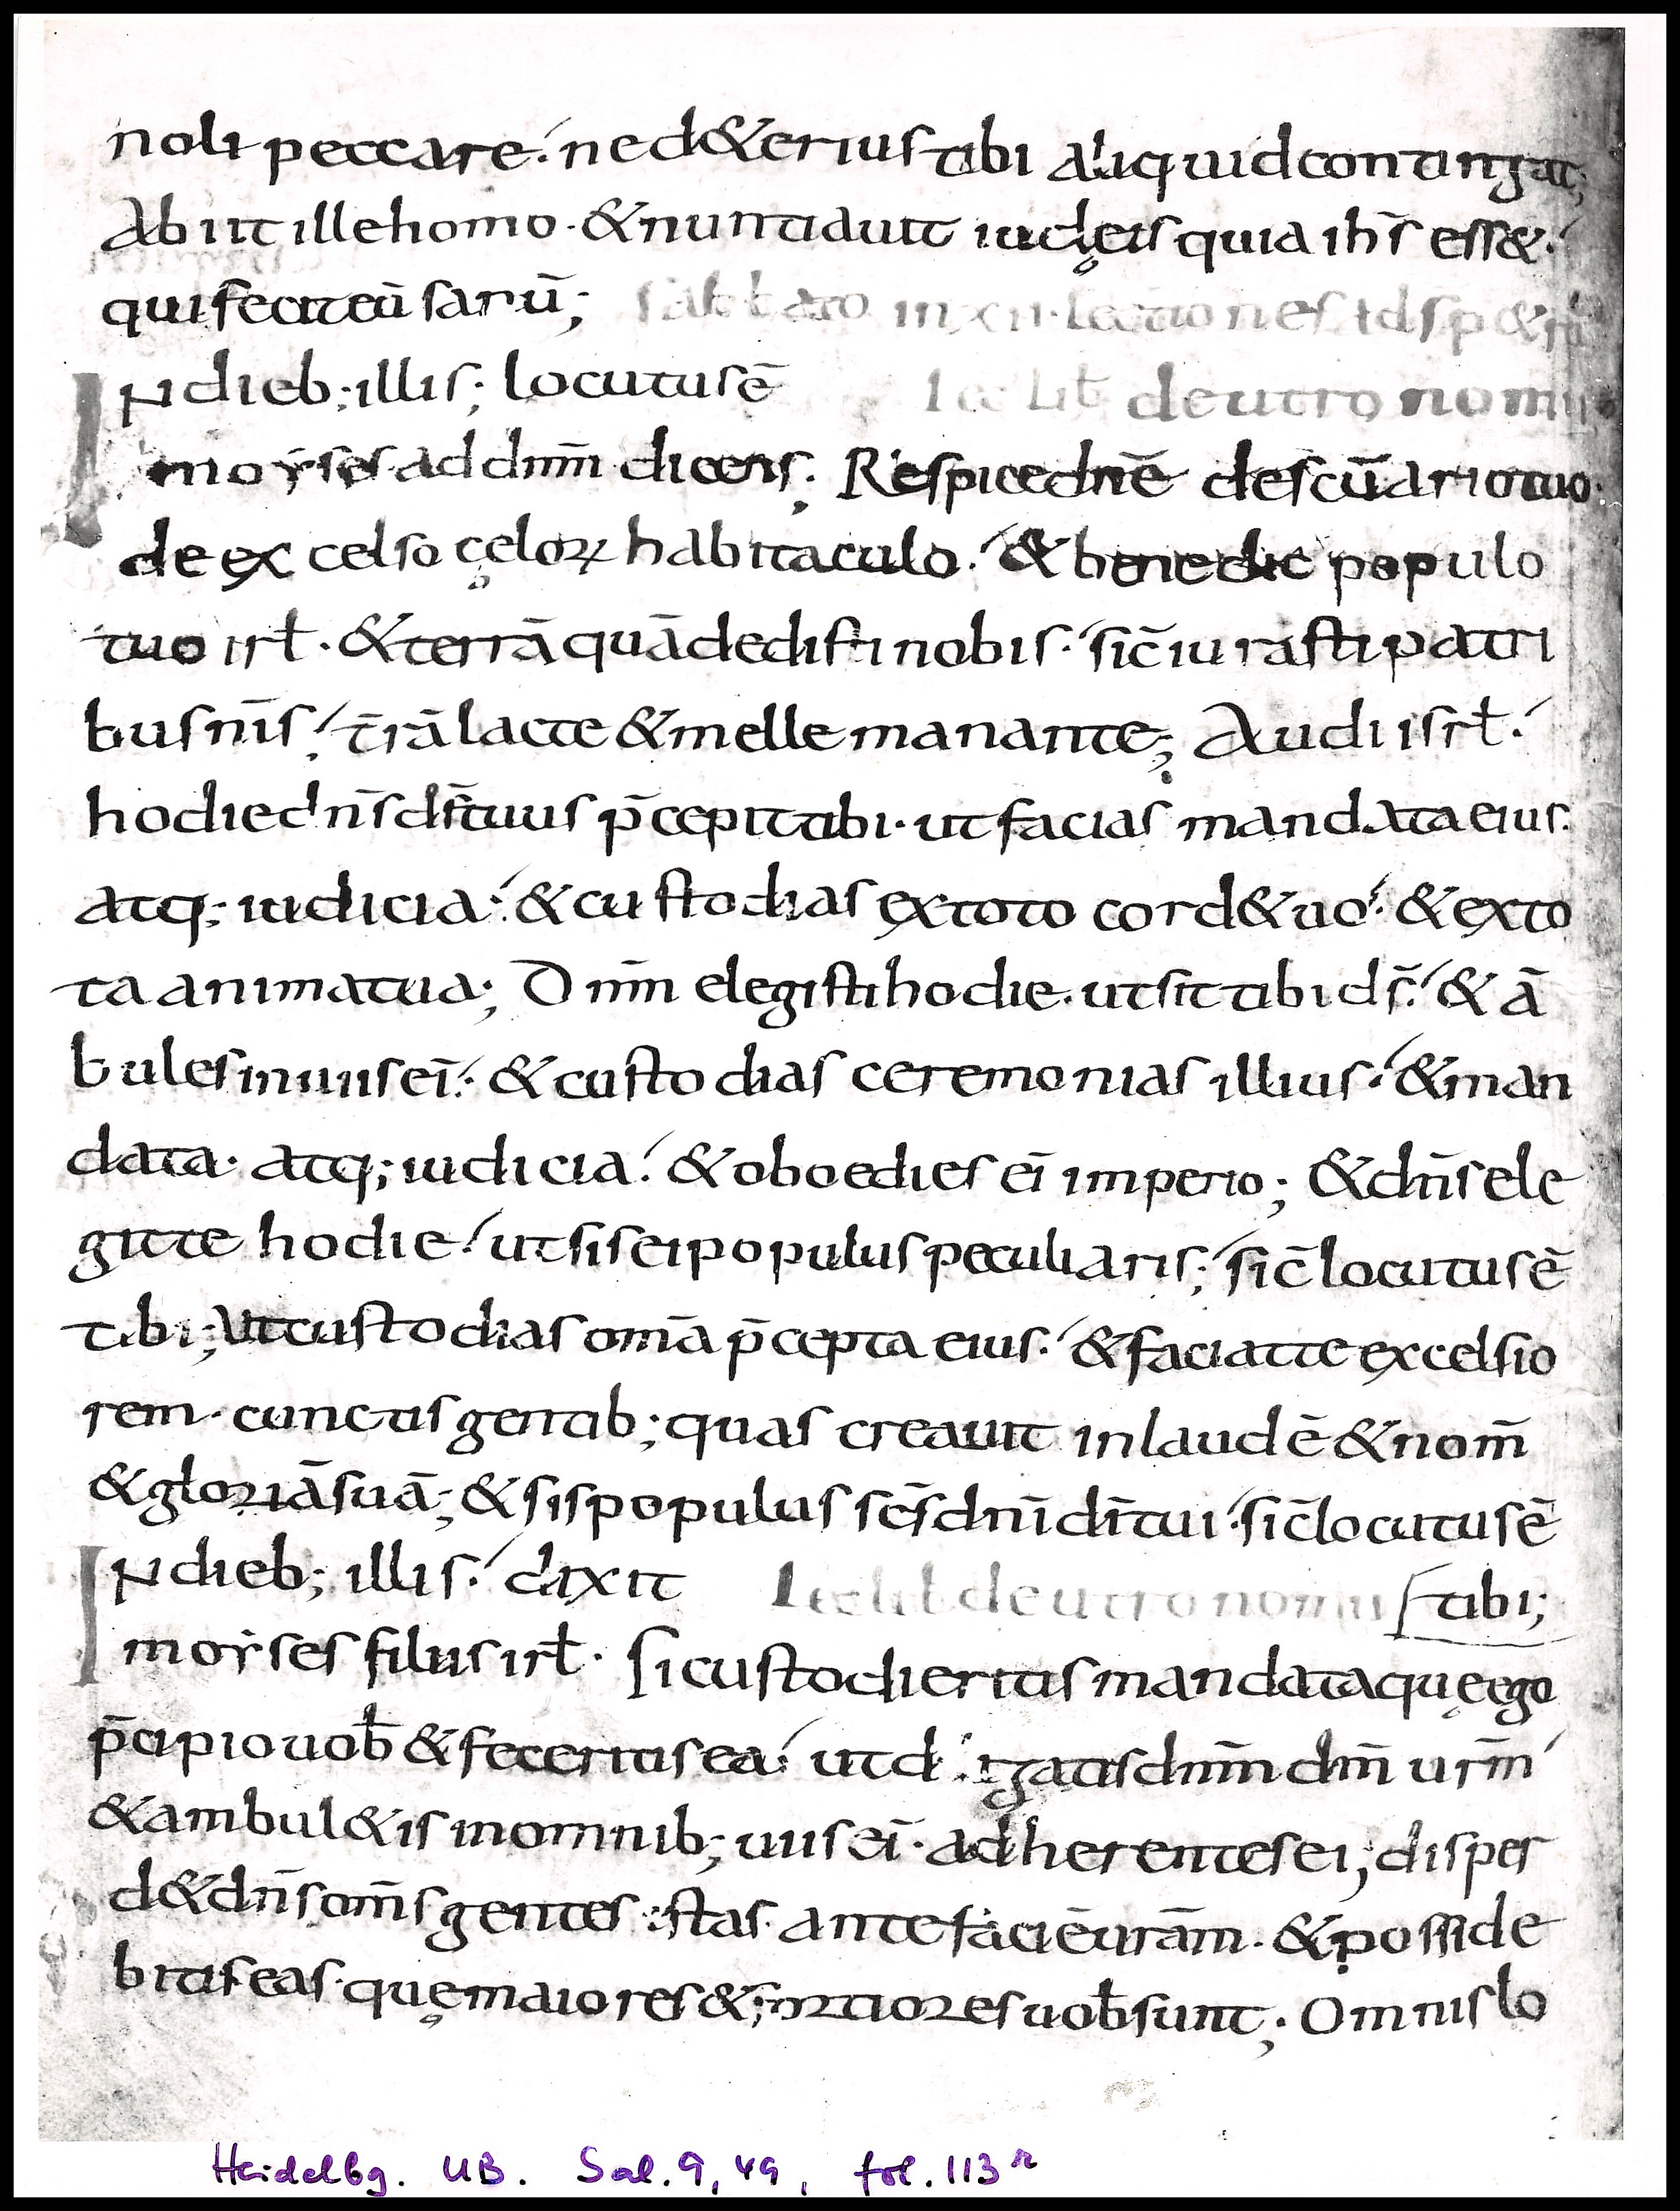 noli peccare. ne d&erius tibi aliquid contingat;
Abiit ille homo. & nuntiauit iudęis quia ihs̄ ess&.
qui fecit eū sanū; sabbato in xii. lectiones
IN dieb; illis; locutus ē Lec Lib̄ deutronomii
moyses ad dnm̄ dicens; Respice dn̄e de sc̄uario tuo.
de excelso cęloꝝ habitaculo. & benedic populo
tuo irl̄. & terrā quā dedisti nobis. sic̄ iurasti patri
bus nr̄is. t̄rā lacte & melle manante; Audi isrl̄.
hodie dn̄s ds̄ tuus p̄cepit tibi. ut facias mandata eius.
atq; iudicia. & custodias ex toto cord& uo. & ex to
ta anima tua; Dnm̄ elegisti hodie. ut sit tibi ds̄. & ā
bules in uiis eī. & custodias ceremonias illius. & man
data. atq; iudicia. & oboedies eī imperio; & dn̄s ele
git te hodie. ut sis ei populus peculiaris; sic̄ locutus ē
tibi; Ut custodias om̄a p̄cepta eius. & faciat te excelsio
rem. cunctis gentib; quas creauit in laudē & nom̄
& gloriā suā; & sis populus sc̄s dn̄i dī tui. sic̄ locutus ē
IN dieb; illis. dixit Lec lib deutronomii tibi;
moyses filius irl̄. Si custodieritis mandata quę ego
p̄cipio uob̄ & feceritis ea. ut d gatis dnm̄ dm̄ urm̄
& ambul&is in omnib; uiis eī. adherentes ei; disper
d& dn̄s om̄s gentes istas. ante faciē urām. & posside
bitis eas. quę maiores & fortiores uob̄ sunt; Omnis lo
Heidelbg. UB. Sal. 9, 49, fol. 113r